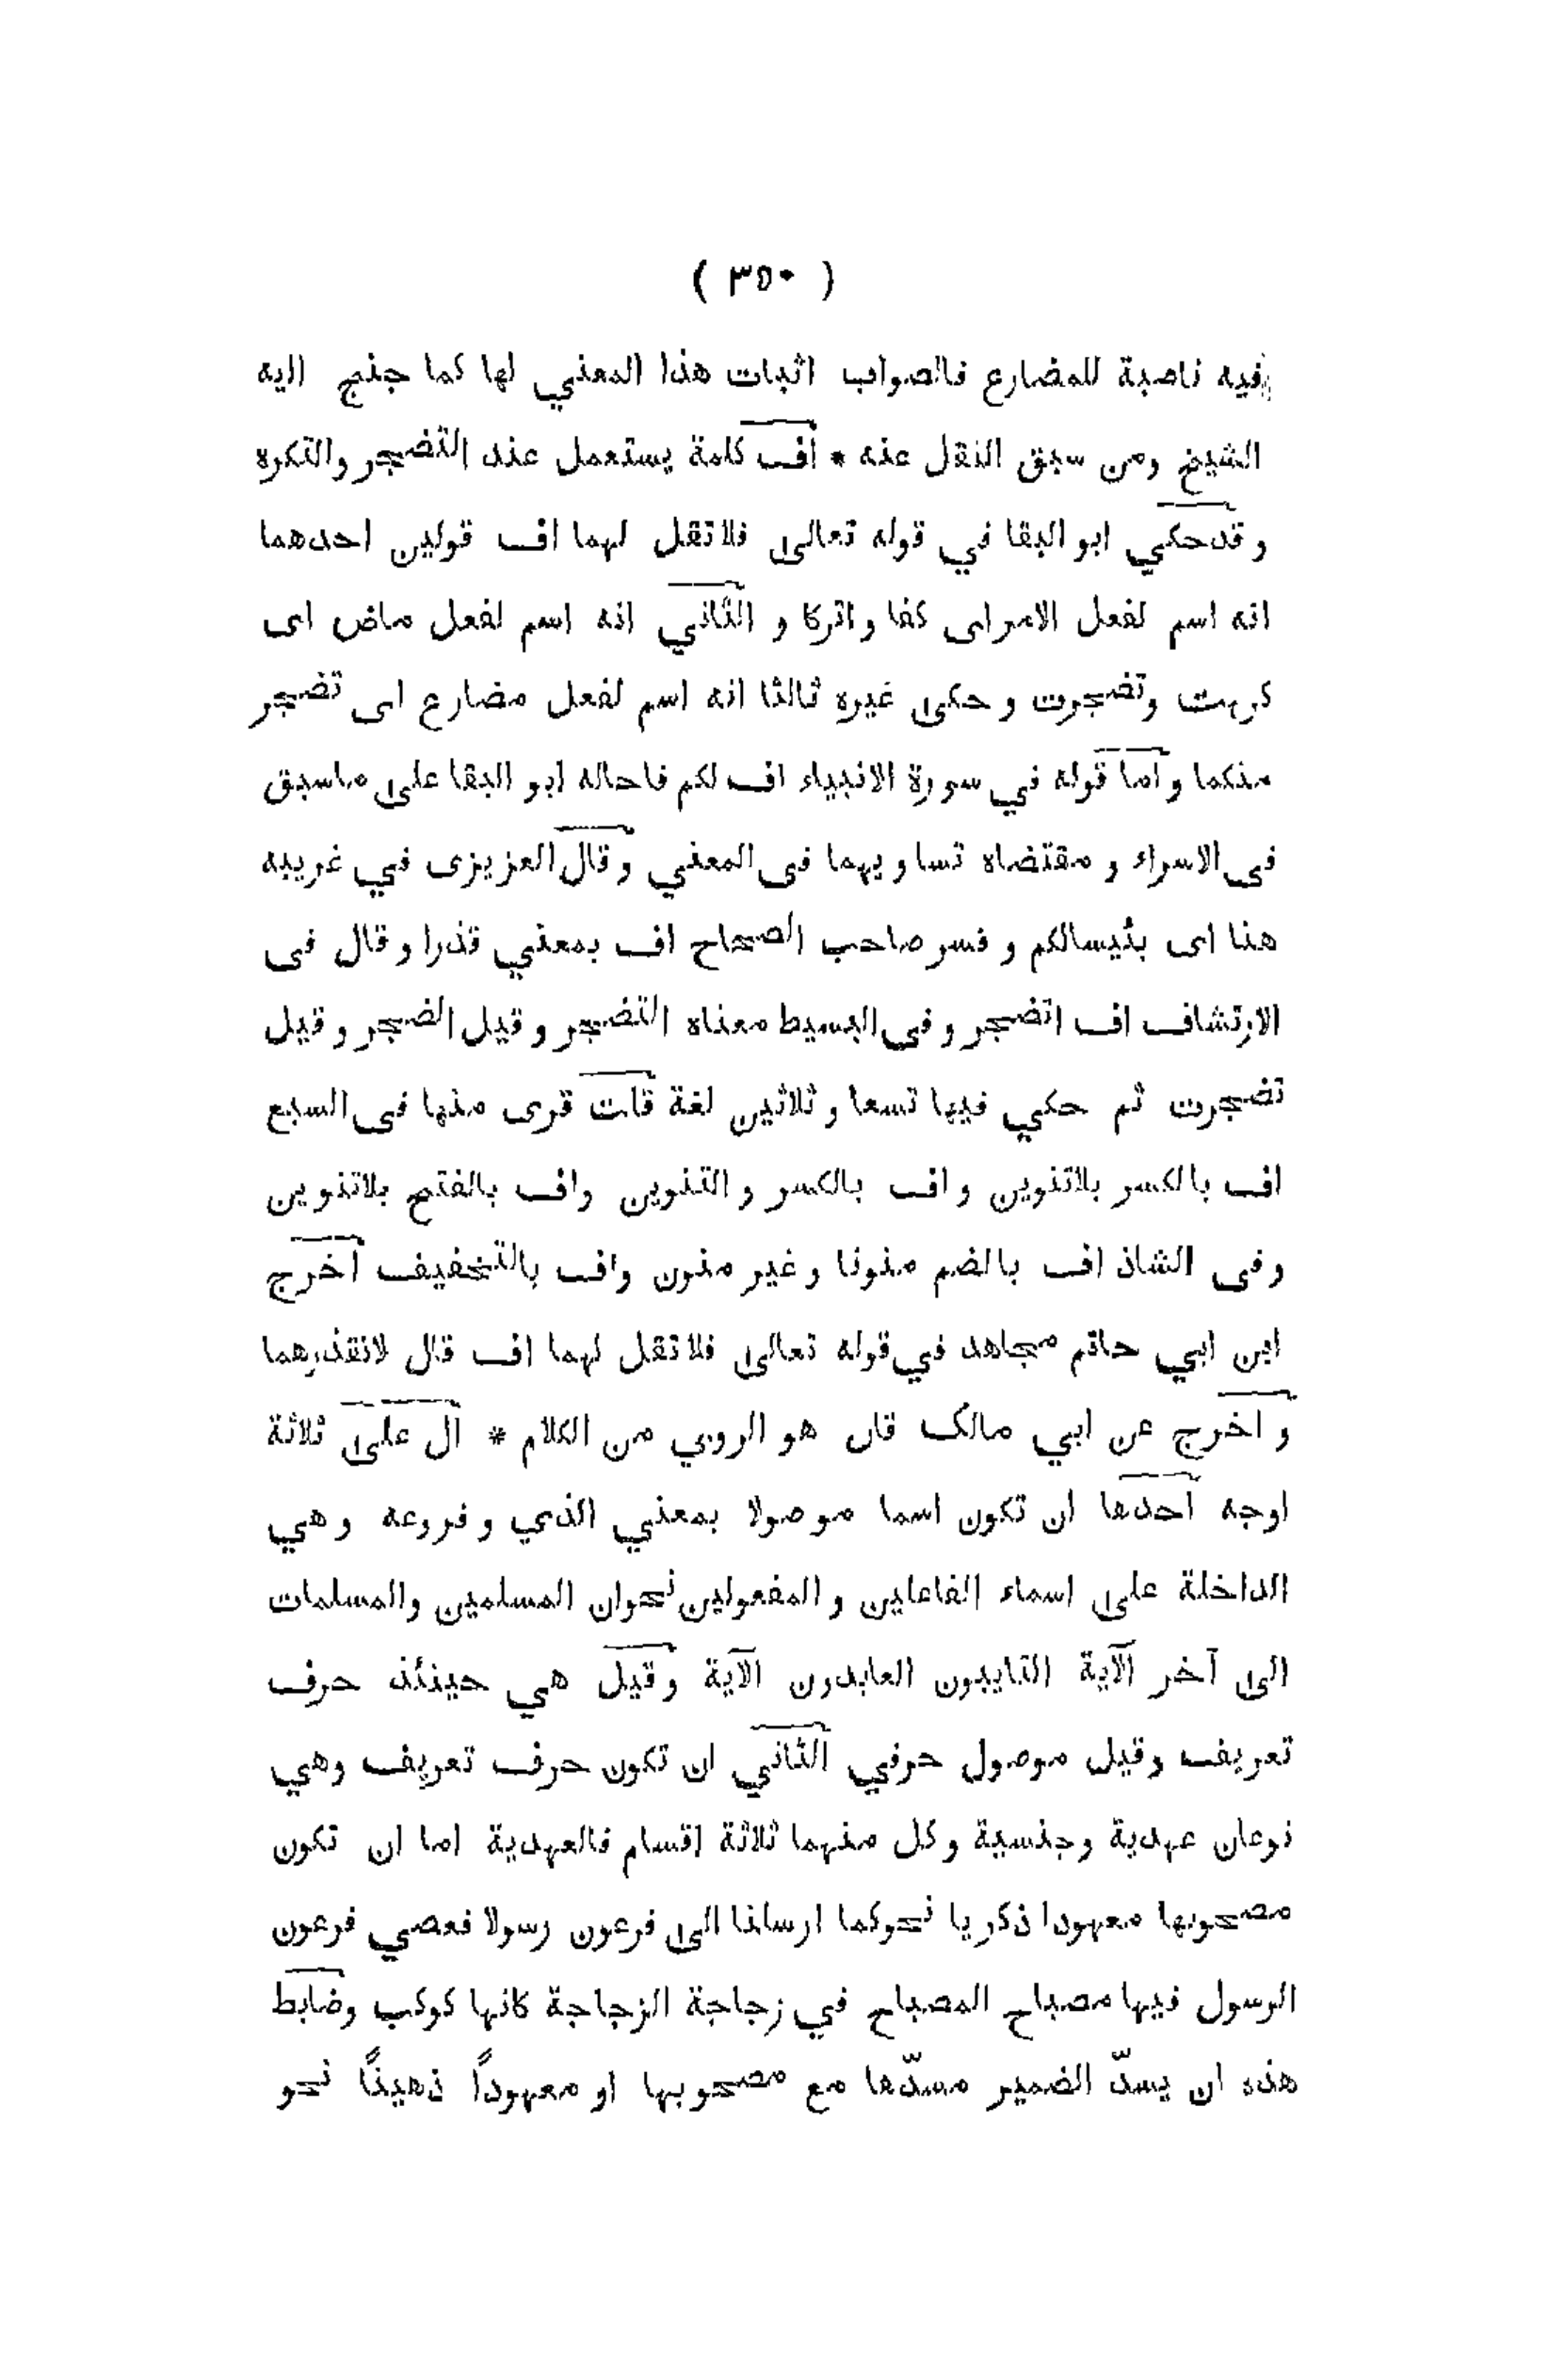 ( ٣٥٠ )
فيه ناصبة للمضارع فالصواب اثبات هذا المعني لها كما جنح اليه
الشيخ ومن سبق النقل عنه * اف كلمة يستعمل عند التضجر والتكره
و قدحكي ابو البقا في قوله تعالى فلا تقل لهما اف قولين احدهما
انه اسم لفعل الامر اى كفا و اتركا و الثاني انه اسم لفعل ماض اى
كرهت وتضجرت و حكى غيره ثالثا انه اسم لفعل مضارع اى تضجر
منكما و اما قوله في سورة الانبياء اف لكم فاحاله ابو البقا على ماسبق
فى الاسراء و مقتضاه تساويهما فى المعني وقال العزيزى في غريبه
هنا اى بئيسالكم و فسر صاحب الصحاح اف بمعني قذرا و قال فى
الارتشاف اف اتضجر و فى البسيط معناه التضجر و قيل الضجر و قيل
تضجرت ثم حكي فيها تسعا و ثلاثين لغة قلت قرى منها فى السبع
اف بالكسر بلاتنوين و اف بالكسر و التنوين واف بالفتح بلاتنوين
و فى الشاذ اف بالضم منونا و غير منون واف بالتخفيف اخرج
ابن ابي حاتم مجاهد في قوله تعالى فلا تقل لهما اف قال لاتقذرهما
و اخرج عن ابي مالک قال هو الردي من الكلام * ال على ثلاثة
اوجه احدها ان تكون اسما موصولا بمعني الذي و فروعه وهي
الداخلة على اسماء الفاعلين و المفعولين نحوان المسلمين والمسلمات
الى آخر الآية التايبون العابدون الآية وقيل هي حينئذ حرف
تعريف وقيل موصول حرفي الثاني ان تكون حرف تعريف وهي
نوعان عهدية وجنسية وكل منهما ثلاثة اقسام فالعهدية اما ان تكون
مصحوبها معهودا ذكريا نحوكما ارسلنا الى فرعون رسولا فعصي فرعون
الرسول فيها مصباح المصباح في زجاجة الزجاجة كانها كوكب وضابط
هذه ان يسدّ الضمير مسدّها مع مصحوبها او معهوداً ذهيناً نحو